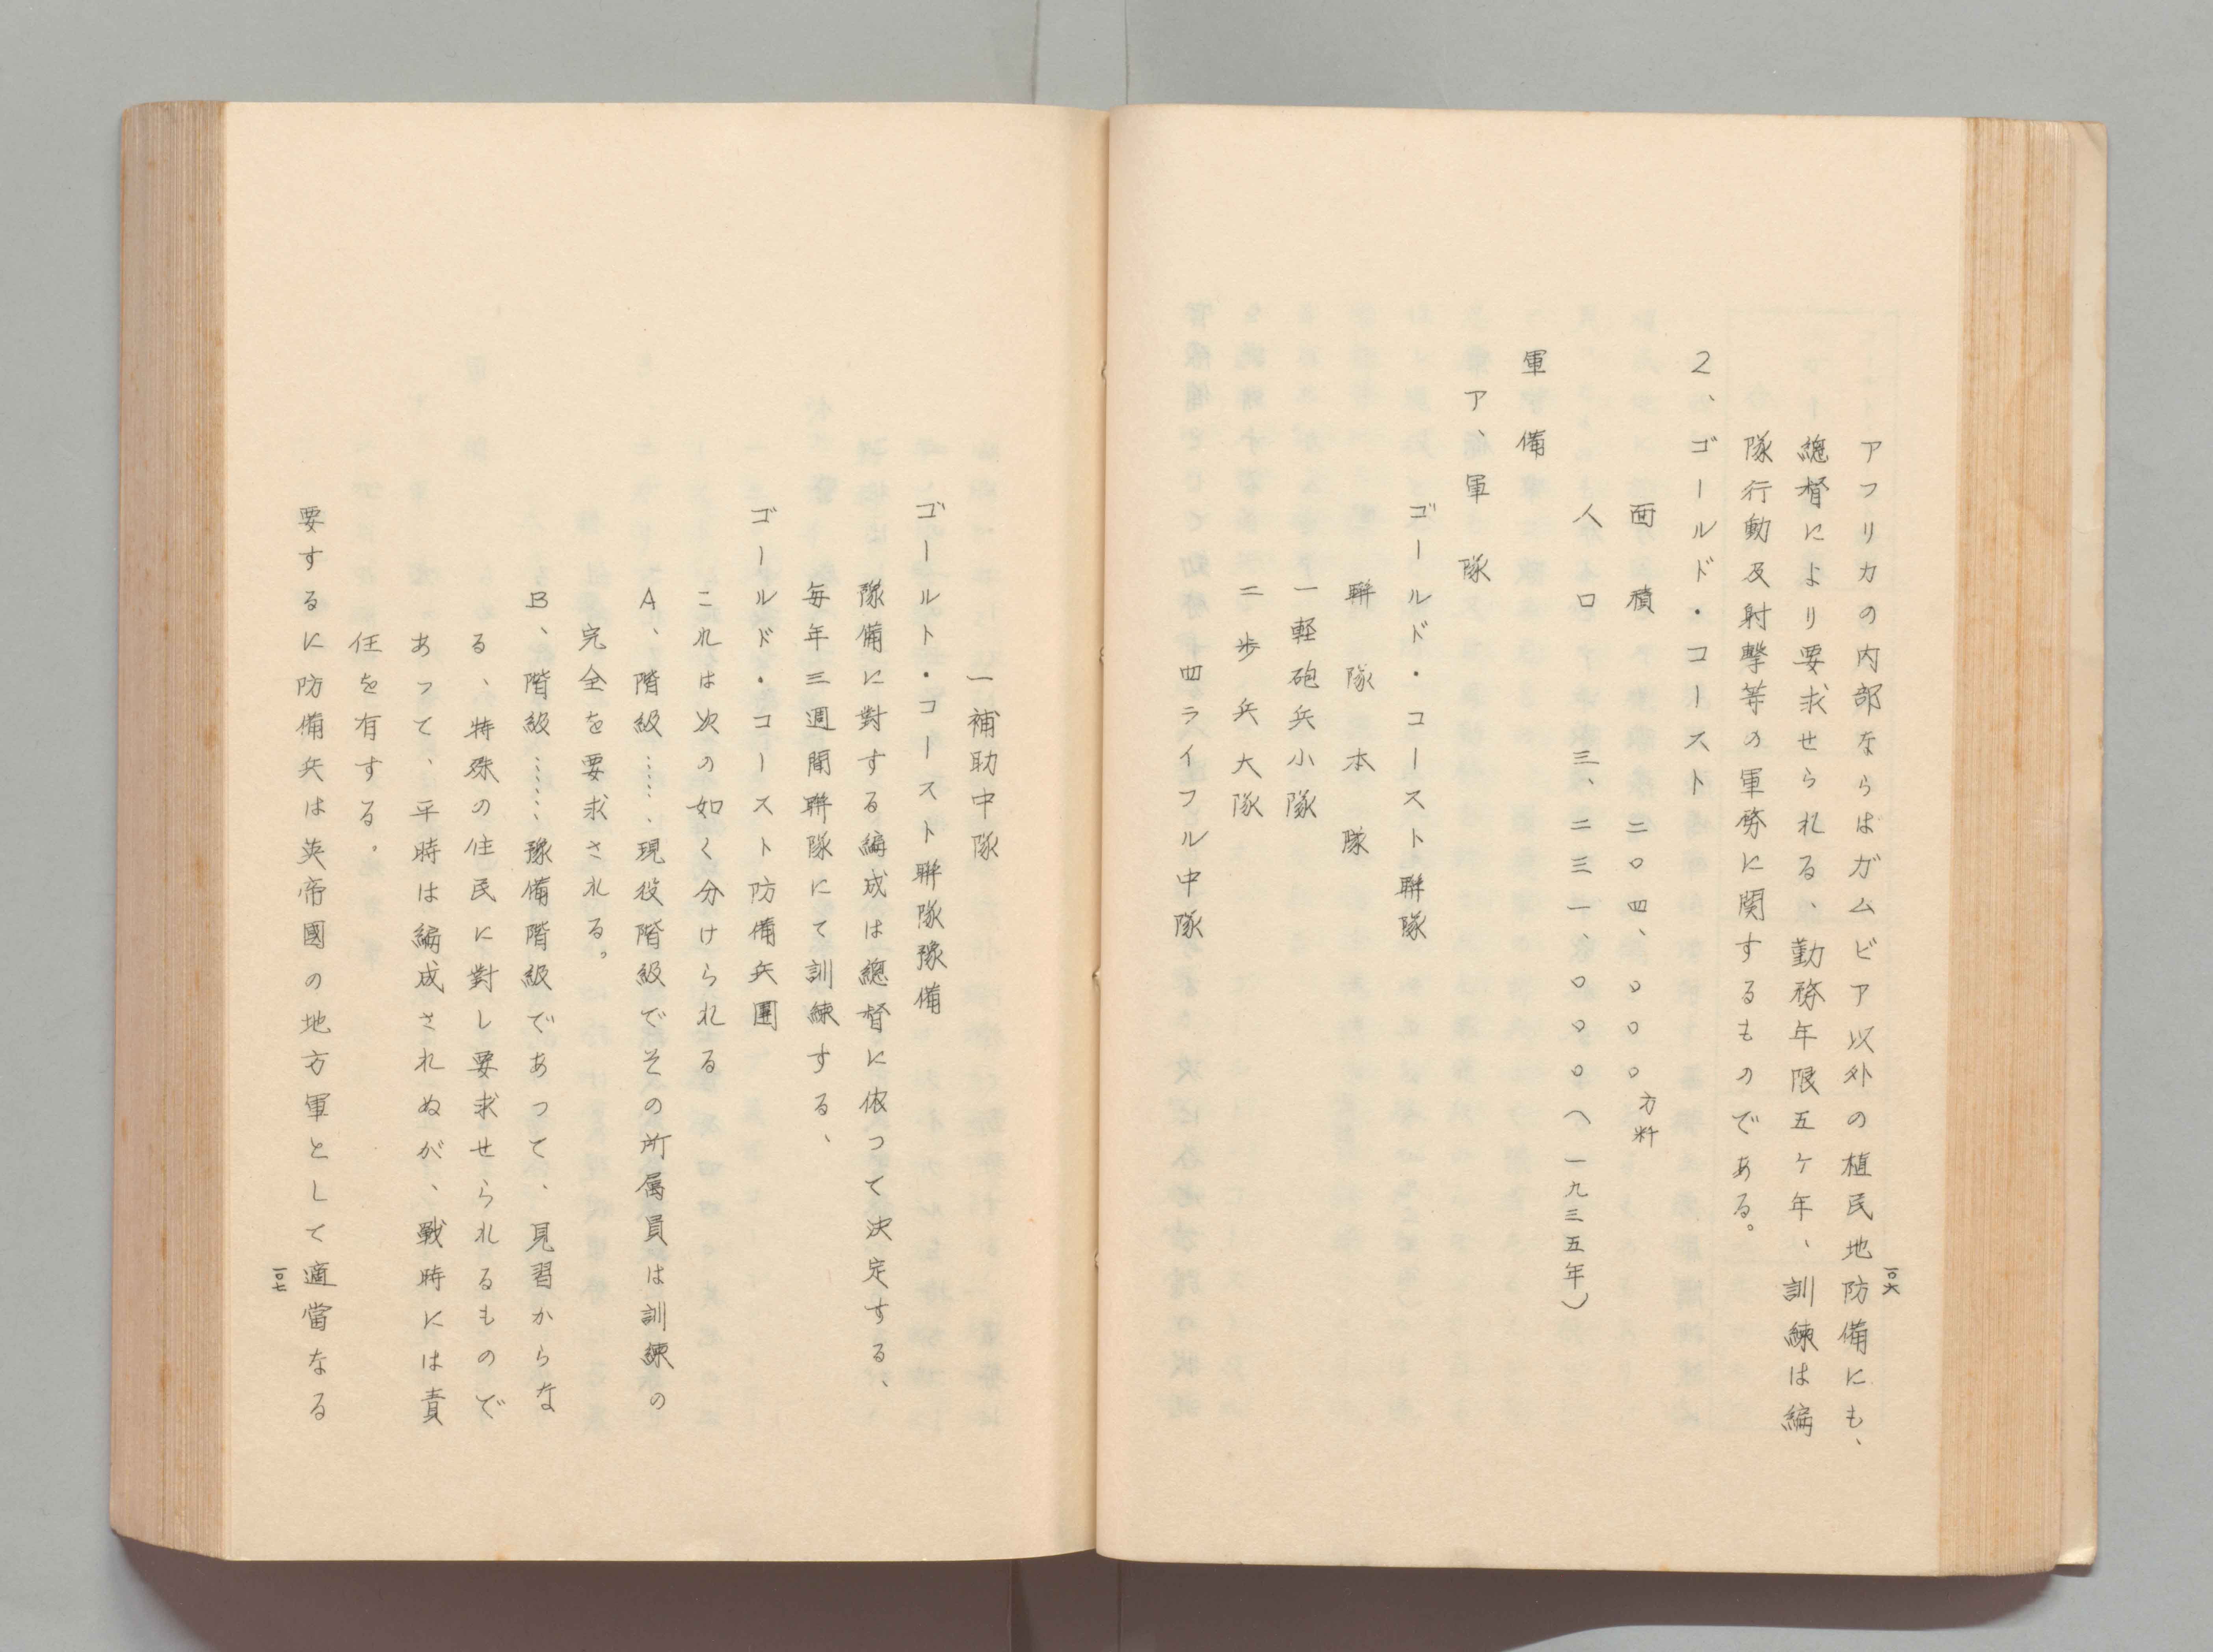 アフリカの内部ならはガムビア以外の植民地防備にも、
總督により要求せられる、勤務年限五ヶ年、訓練は編
隊行動及射撃等の軍務に関するものである。
2、ゴールド・コースト
面積 二〇四、〇〇〇方粁
人口 三、二三一、〇〇〇(一九三五年)
軍備
ア、軍隊
ゴールド・コースト聯隊
聯隊本隊
一軽砲兵小隊
二歩兵大隊
四ライフル中隊
一〇六
一補助中隊
ゴールト・コースト聯隊豫備
隊備に對する編成は總督に依つて決定する、
毎年三週間聯隊にて訓練する、
ゴールド・コースト防備兵團
これは次の如く分けられる
A、階級……、現役階級でその所属員は訓練の
完全を要求される。
B、階級……、豫備階級であつて、見習からな
る、特殊の住民に對し要求せられるもので
あつて、平時は編成されぬが、戰時には責
任を有する。
要するに防備兵は英帝國の地方軍として適當なる
一〇七